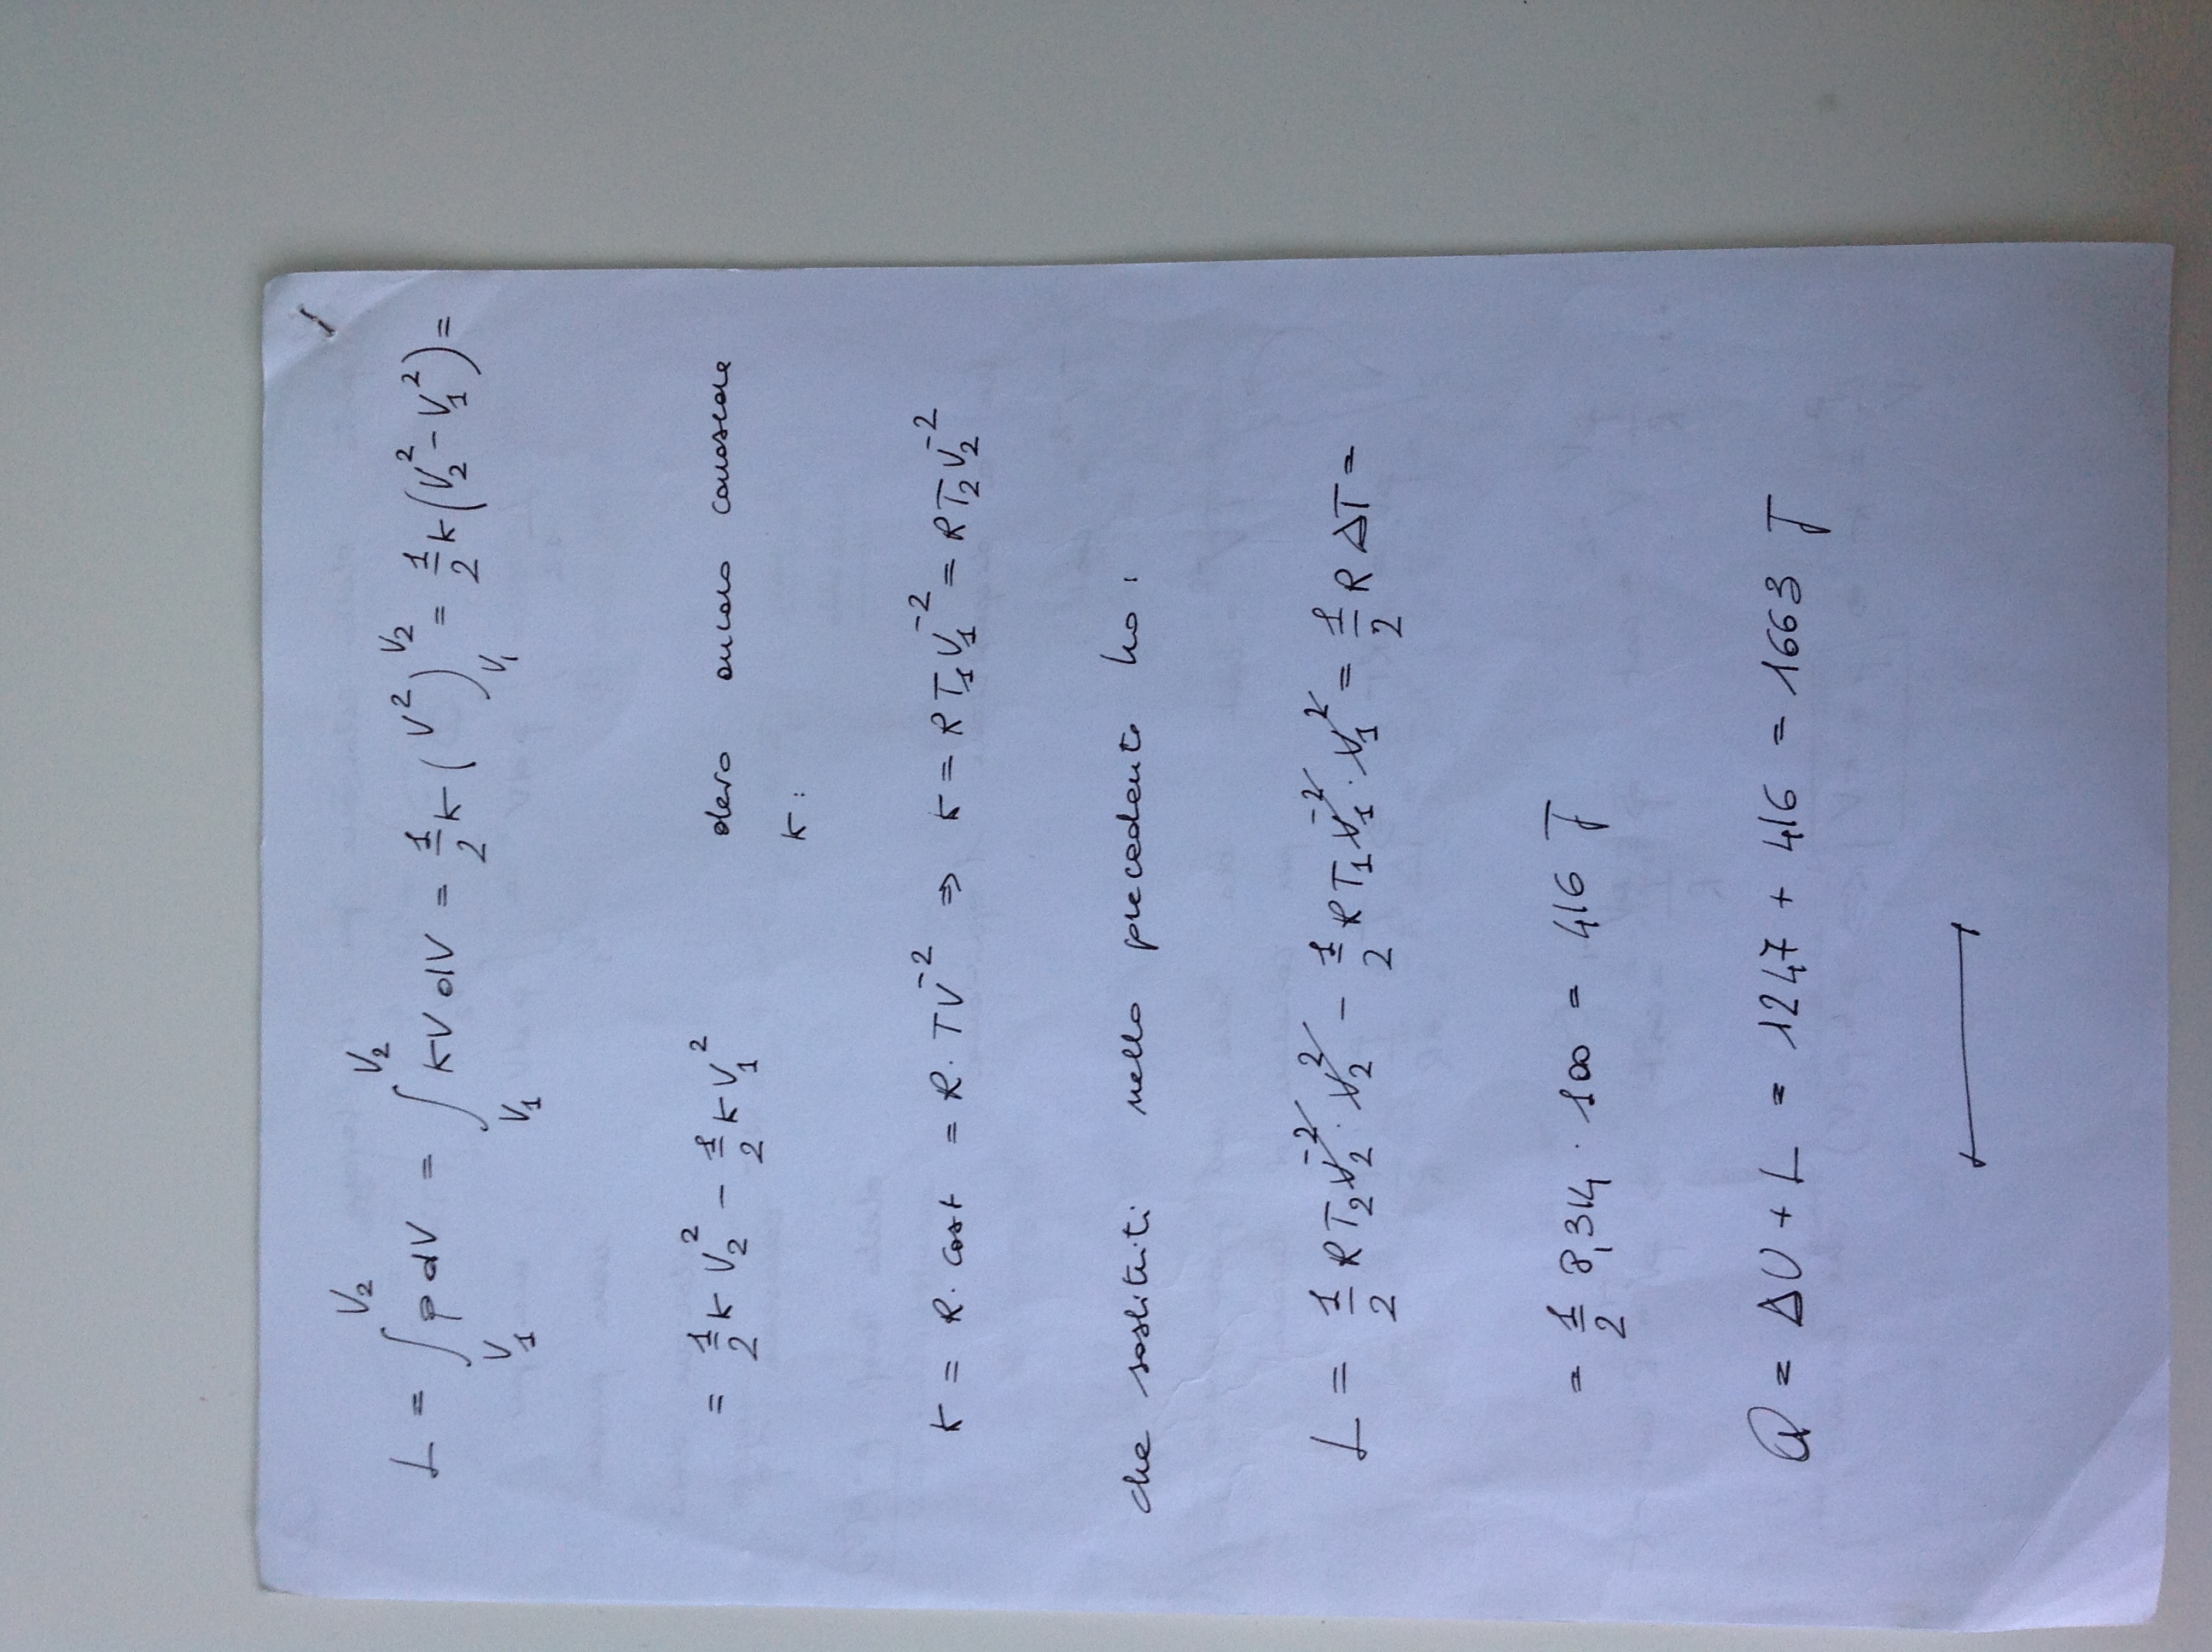 L = ∫_{V₁}^{V₂} p dV = ∫_{V₁}^{V₂} KV dV = 1/2 K (V²)_{V₁}^{V₂} = 1/2 K (V₂² - V₁²) =
= 1/2 K V₂² - 1/2 K V₁² devo ancora conoscere
K:
K = R · cost = R · TV⁻² ⇒ K = R T₁ V₁⁻² = R T₂ V₂⁻²
che sostituiti nella precedente ho:
L = 1/2 R T₂ V₂⁻² · V₂² - 1/2 R T₁ V₁⁻² · V₁² = 1/2 R ΔT =
= 1/2 8,314 · 100 = 416 J
Q = ΔU + L = 1247 + 416 = 1663 J